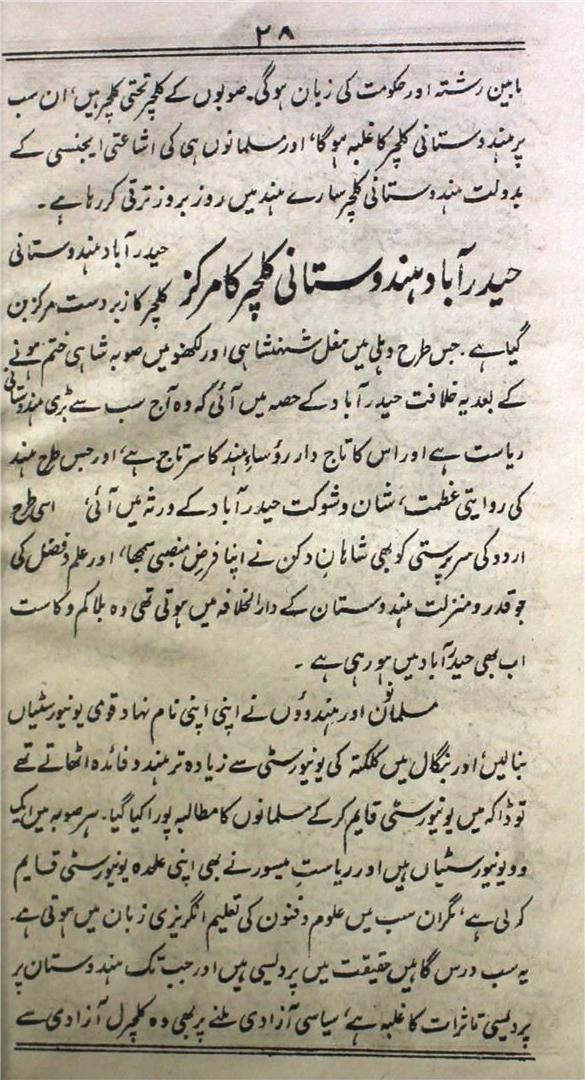 ۲۸
مابین رشتہ اور حکومت کی زبان ہوگی۔ صوبوں کے کلچر تحتی کلچر ہیں، ان سب
پر ہندوستانی کلچر کا غلبہ ہوگا، اور مسلمانوں ہی کی اشاعتی ایجنسی کے
بدولت ہندوستانی کلچر سارے ہند میں روز بروز ترقی کر رہا ہے۔
حیدرآباد ہندوستانی کلچر کا مرکز
حیدرآباد ہندوستانی
کلچر کا زبردست مرکز بن
گیا ہے۔ جس طرح دہلی میں مغل شہنشاہی اور لکھنو میں صوبہ شاہی ختم ہونے
کے بعد یہ خلافت حیدرآباد کے حصہ میں آئی کہ وہ آج سب سے بڑی ہندوستانی
ریاست ہے اور اس کا تاج دار رؤساءِ ہند کا سرتاج ہے، اور جس طرح ہند
کی روایتی عظمت، شان و شوکت حیدرآباد کے ورثہ میں آئی، اسی طرح
اردو کی سرپرستی کو بھی شاہانِ دکن نے اپنا فرض منصبی سمجھا، اور علم و فضل کی
جو قدر و منزلت ہندوستان کے دارالخلافہ میں ہوتی تھی وہ بلا کم و کاست
اب بھی حیدرآباد میں ہو رہی ہے۔
مسلمانوں اور ہندوؤں نے اپنی اپنی نام نہاد قومی یونیورسٹیاں
بنالیں، اور بنگال میں کلکتہ کی یونیورسٹی سے زیادہ تر ہندو فائدہ اٹھاتے تھے
تو ڈاکہ میں یونیورسٹی قایم کرکے مسلمانوں کا مطالبہ پورا کیا گیا۔ ہر صوبہ میں ایک
دو یونیورسٹیاں ہیں اور ریاستِ میسور نے بھی اپنی علحدہ یونیورسٹی قایم
کرلی ہے، مگر ان سب میں علوم و فنون کی تعلیم انگریزی زبان میں ہوتی ہے۔
یہ سب درس گاہیں حقیقت میں پردیسی ہیں اور جب تک ہندوستان پر
پردیسی تاثرات کا غلبہ ہے، سیاسی آزادی ملنے پر بھی وہ کلچرل آزادی سے